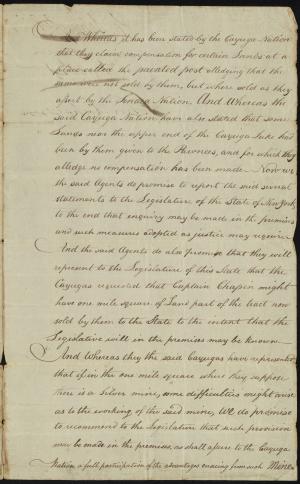 Whereas it has been stated by the Cayuga Nation
that they claim compensation for certain Lands at a
place called the painted post alledging that the
same were not sold by them, but where sold as they
assert by the Seneca Nation. And Whereas the
said Cayuga Nation have also stated that some
Lands near the upper end of the Cayuga Lake had
been by them given to the and for which they
alledge no compensation has been made. Now we
the said Agents do promise to report the said several
statements to the Legislature of the State of New York,
to the end that enquiry may be made in the premises
and such measures adopted as justice may require.
And the said Agents do also promise that they will
represent to the Legislature of this State that the
Cayugas requested that Captain Chapin might
have one mile square of Land part of the tract now
sold by them to the State to the intent that the
Legislative will in the premises may be known.
And Whereas they the said Cayugas have represented
that if in the one mile square where they suppose
there is a Silver mine, some difficulties might arise
as to the working of the said mine, We do promise
to recommend to the Legislature that such provision
may be made in the premises, as shall assure to the Cayuga
Nation a full participation of the advantages ensuing from such Mine